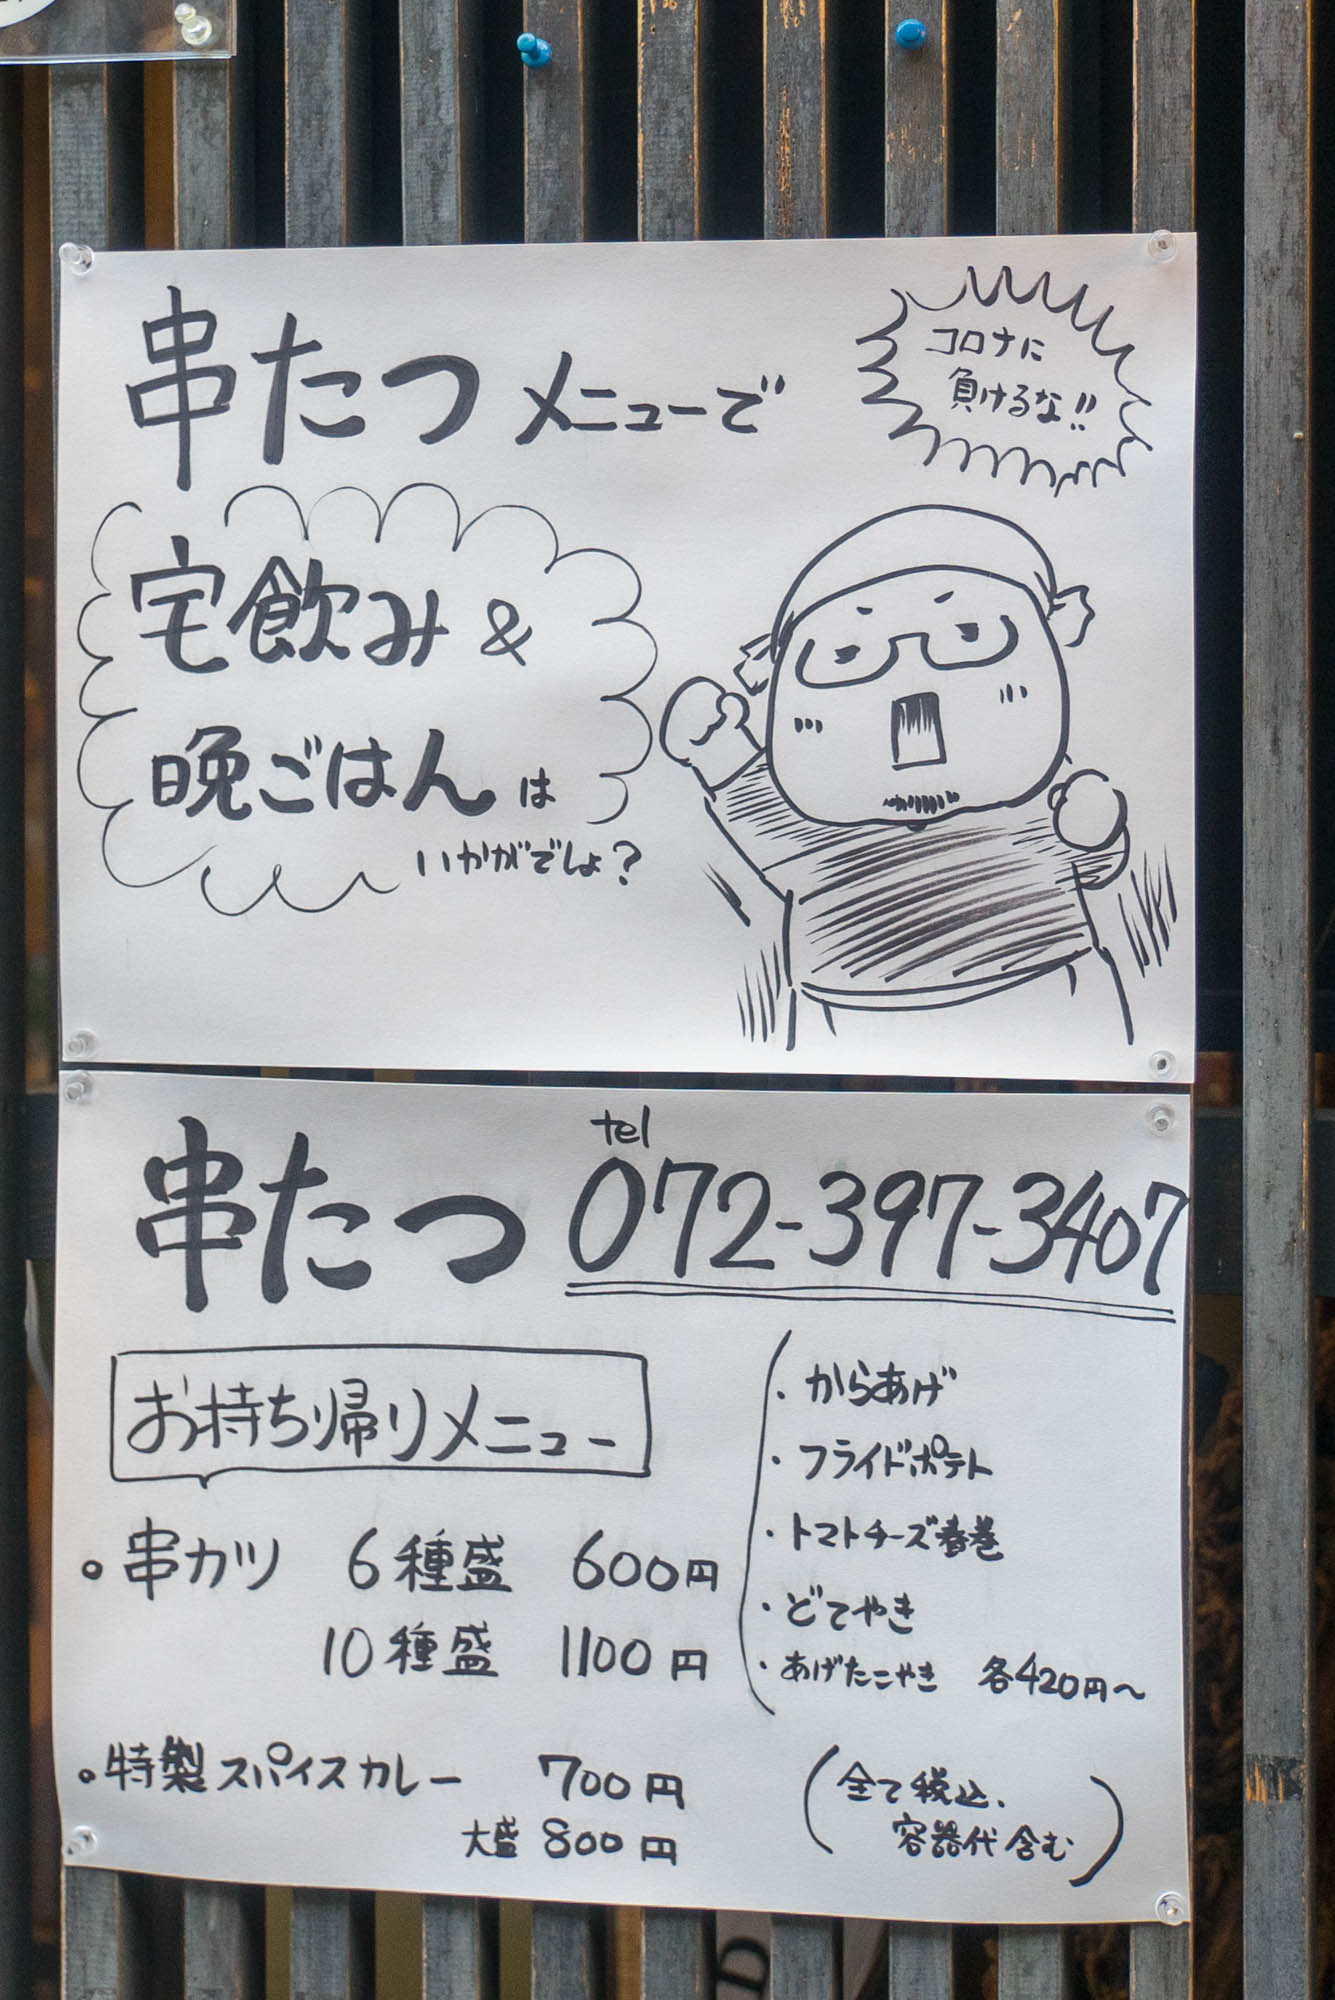 串たつメニューで
コロナに
負けるな!!
宅飲み&
晩ごはんは
いかがでしょ?
tel
串たつ 072-397-3407
お持ち帰りメニュー
。串カツ 6種盛 600円
10種盛 1100円
。特製スパイスカレー 700円
大盛 800円
・からあげ
・フライドポテト
・トマトチーズ春巻
・どてやき
・あげたこやき 各420円～
(全て税込、
容器代含む)
D